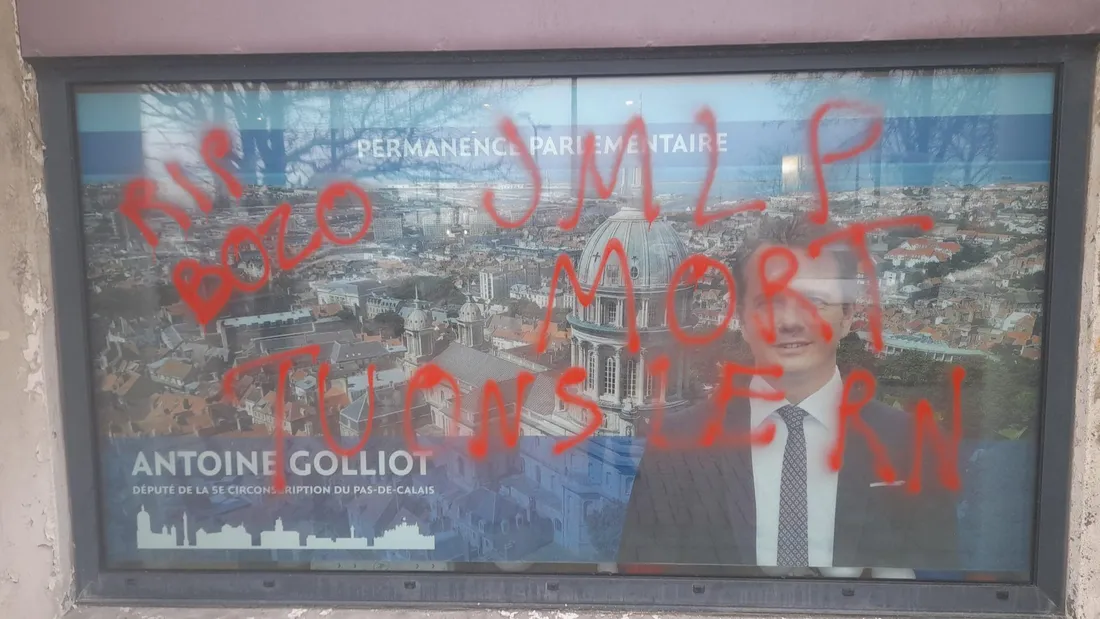 PERMANENCE PARLEMENTAIRE
RIP
BOZO
JMLP
MORT
TUONS LE RN
ANTOINE GOLLIOT
DÉPUTÉ DE LA 5E CIRCONSCRIPTION DU PAS-DE-CALAIS